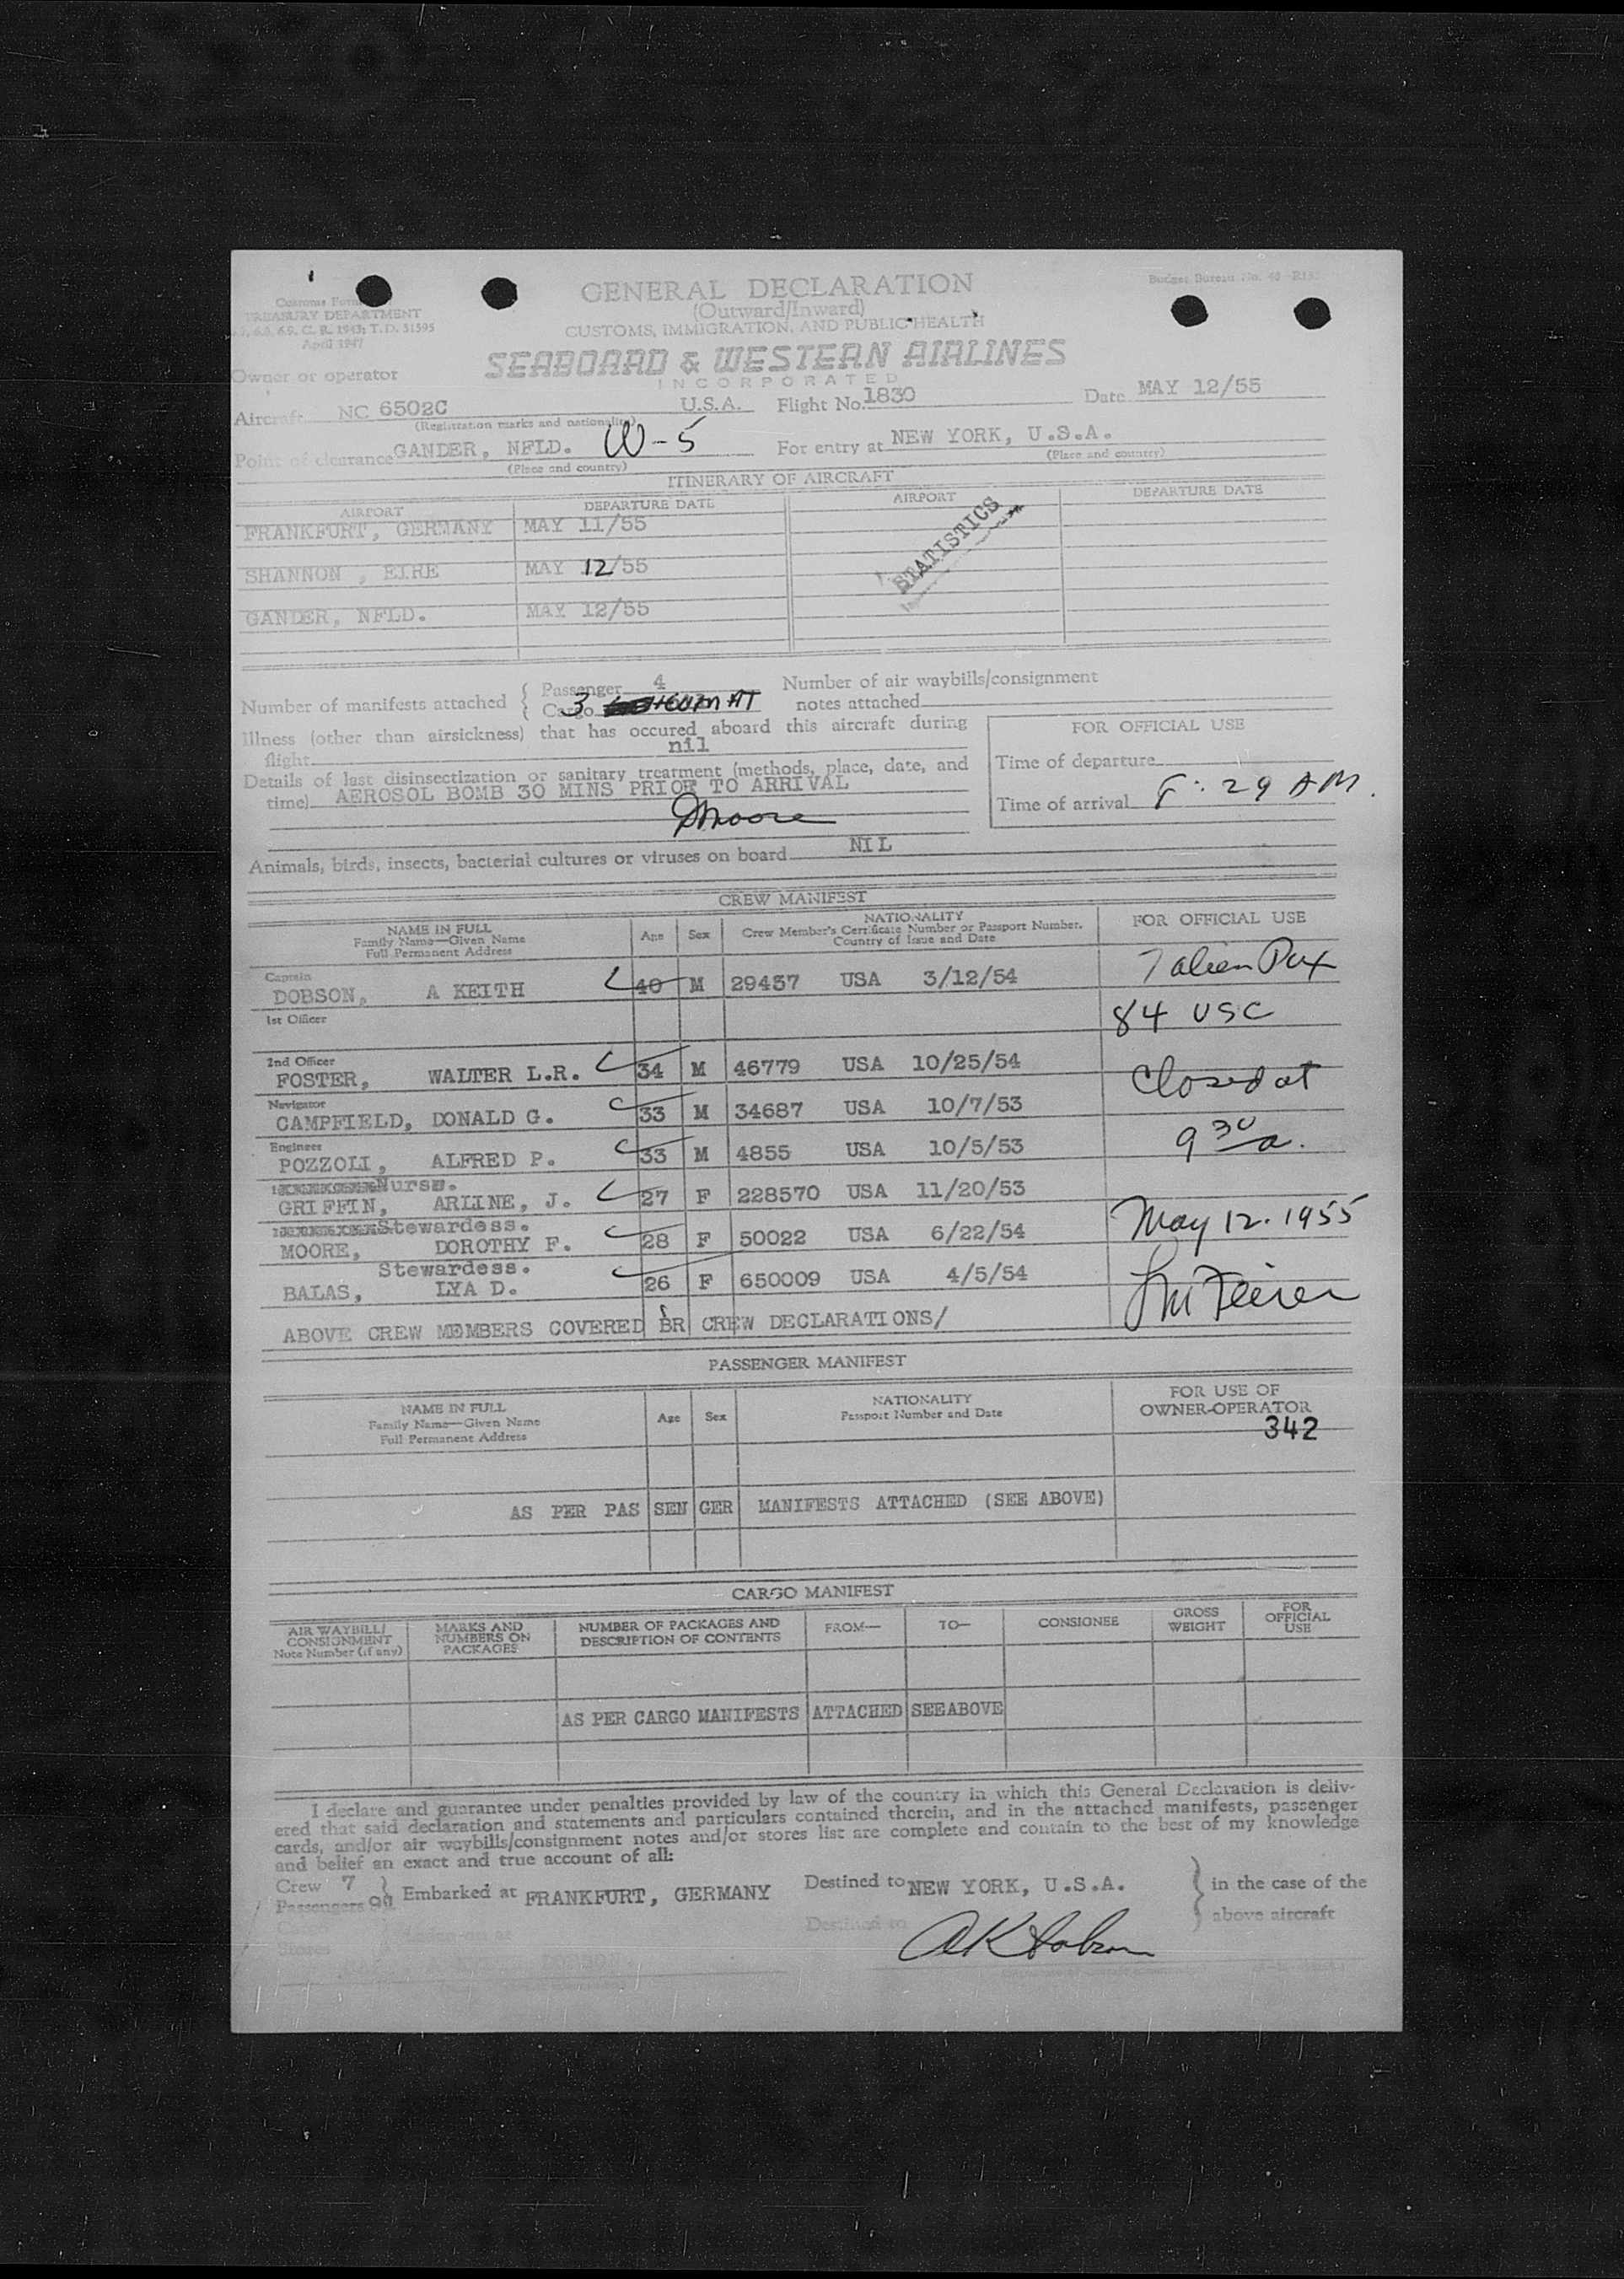 Customs Form
TREASURY DEPARTMENT
6.8, 6.9, C. R. 1943; T. D. 51595
April 1947
Budget Bureau No. 48
GENERAL DECLARATION
(Outward/Inward)
CUSTOMS, IMMIGRATION, AND PUBLIC HEALTH
SEABOARD & WESTERN AIRLINES
INCORPORATED
Owner or operator
Aircraft NC 6502C U.S.A. Flight No. 1830 Date MAY 12/55
(Registration marks and nationality)
Point of clearance GANDER, NFLD. W-5 For entry at NEW YORK, U.S.A.
(Place and country) (Place and country)
ITINERARY OF AIRCRAFT
AIRPORT DEPARTURE DATE AIRPORT DEPARTURE DATE
FRANKFURT, GERMANY MAY 11/55
STATISTICS
SHANNON , EIRE MAY 12/55
GANDER, NFLD. MAY 12/55
Number of manifests attached { Passenger 4 Number of air waybills/consignment
Cargo 3 notes attached
Illness (other than airsickness) that has occured aboard this aircraft during
flight nil
FOR OFFICIAL USE
Details of last disinsectization or sanitary treatment (methods, place, date, and
time) AEROSOL BOMB 30 MINS PRIOR TO ARRIVAL
Time of departure
Time of arrival 8:29 AM.
DMoore
Animals, birds, insects, bacterial cultures or viruses on board NIL
CREW MANIFEST
NAME IN FULL Age Sex NATIONALITY FOR OFFICIAL USE
Family Name—Given Name Crew Member's Certificate Number or Passport Number.
Full Permanent Address Country of Issue and Date
Captain
DOBSON, A KEITH 40 M 29457 USA 3/12/54 7 alien Pax
1st Officer 84 USC
2nd Officer
FOSTER, WALTER L.R. 34 M 46779 USA 10/25/54 Closed at
Navigator
CAMPFIELD, DONALD G. 33 M 34687 USA 10/7/53
Engineer
POZZOLI, ALFRED P. 33 M 4855 USA 10/5/53 9 30 a.
Nurse.
GRIFFIN, ARLINE, J. 27 F 228570 USA 11/20/53
Stewardess.
MOORE, DOROTHY F. 28 F 50022 USA 6/22/54 May 12. 1955
Stewardess.
BALAS, LYA D. 26 F 650009 USA 4/5/54
ABOVE CREW MEMBERS COVERED BR CREW DECLARATIONS/
PASSENGER MANIFEST
NAME IN FULL Age Sex NATIONALITY FOR USE OF
Family Name—Given Name Passport Number and Date OWNER-OPERATOR
Full Permanent Address 342
AS PER PAS SEN GER MANIFESTS ATTACHED (SEE ABOVE)
CARGO MANIFEST
AIR WAYBILL/ MARKS AND NUMBER OF PACKAGES AND FROM— TO— CONSIGNEE GROSS FOR
CONSIGNMENT NUMBERS ON DESCRIPTION OF CONTENTS WEIGHT OFFICIAL
Note Number (if any) PACKAGES USE
AS PER CARGO MANIFESTS ATTACHED SEEABOVE
I declare and guarantee under penalties provided by law of the country in which this General Declaration is deliv-
ered that said declaration and statements and particulars contained therein, and in the attached manifests, passenger
cards, and/or air waybills/consignment notes and/or stores list are complete and contain to the best of my knowledge
and belief an exact and true account of all:
Crew 7 } Embarked at FRANKFURT, GERMANY Destined to NEW YORK, U.S.A. } in the case of the
Passengers above aircraft
Destined to
Stores
AKDobson